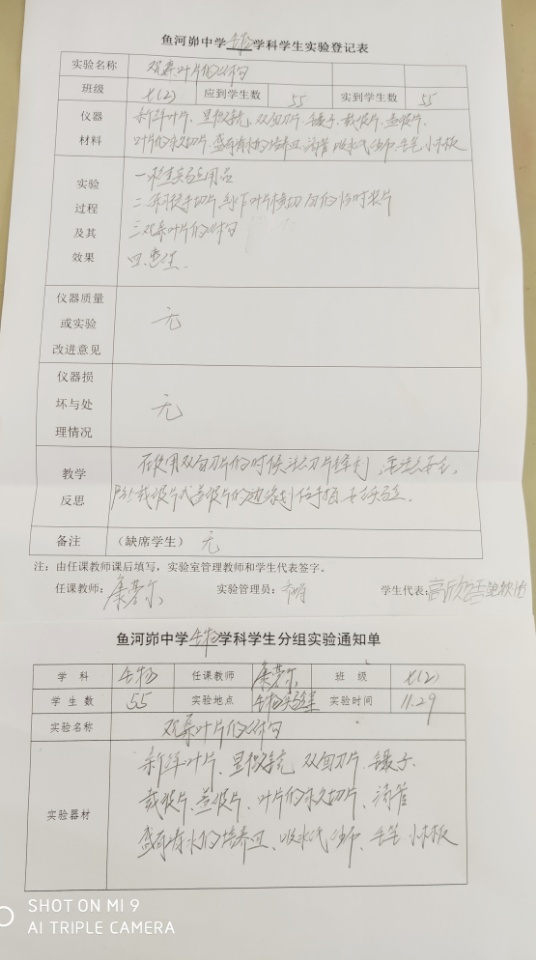 鱼河峁中学生物学科学生实验登记表
实验名称 观察叶片的结构
班级 七(2) 应到学生数 55 实到学生数 55
仪器 新鲜叶片、显微镜、双面刀片、镊子、载玻片、盖玻片、
材料 叶片的永久切片、盛有清水的培养皿、滴管、吸水纸、毛笔、小木板
实验 一、准备实验用品
过程 二、练习徒手切片,制作叶片横切面的临时装片
及其 三、观察叶片的结构
效果 四、整理
仪器质量
或实验 无
改进意见
仪器损
坏与处 无
理情况
教学 在使用双面刀片的时候注意刀片锋利,注意安全,
反思 防止载玻片或盖玻片的边缘划伤手指
备注 (缺席学生) 无
注:由任课教师课后填写,实验室管理教师和学生代表签字。
任课教师: 实验管理员: 学生代表:
鱼河峁中学生物学科学生分组实验通知单
学 科 生物 任课教师 班 级 七(2)
学生数 55 实验地点 生物实验室 实验时间 11.29
实验名称 观察叶片的结构
新鲜叶片、显微镜、双面刀片、镊子、
实验器材 载玻片、盖玻片、叶片的永久切片、滴管
盛有清水的培养皿、吸水纸、毛笔、小木板
SHOT ON MI 9
AI TRIPLE CAMERA